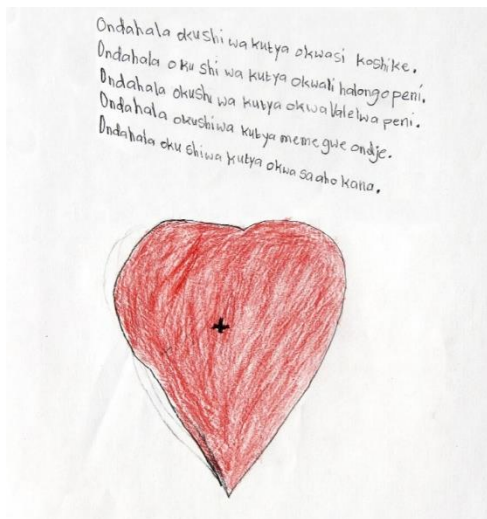 Ondahala okushi wa kutya okwasi koshike.
Ondahala oku shi wa kutya okwali halongo peni.
Ondahala okushi wa kutya okwa lalelwa peni.
Ondahala okushiwa kutya meme gwe ondje.
Ondahala oku shiwa kutya okwa saaho kana.